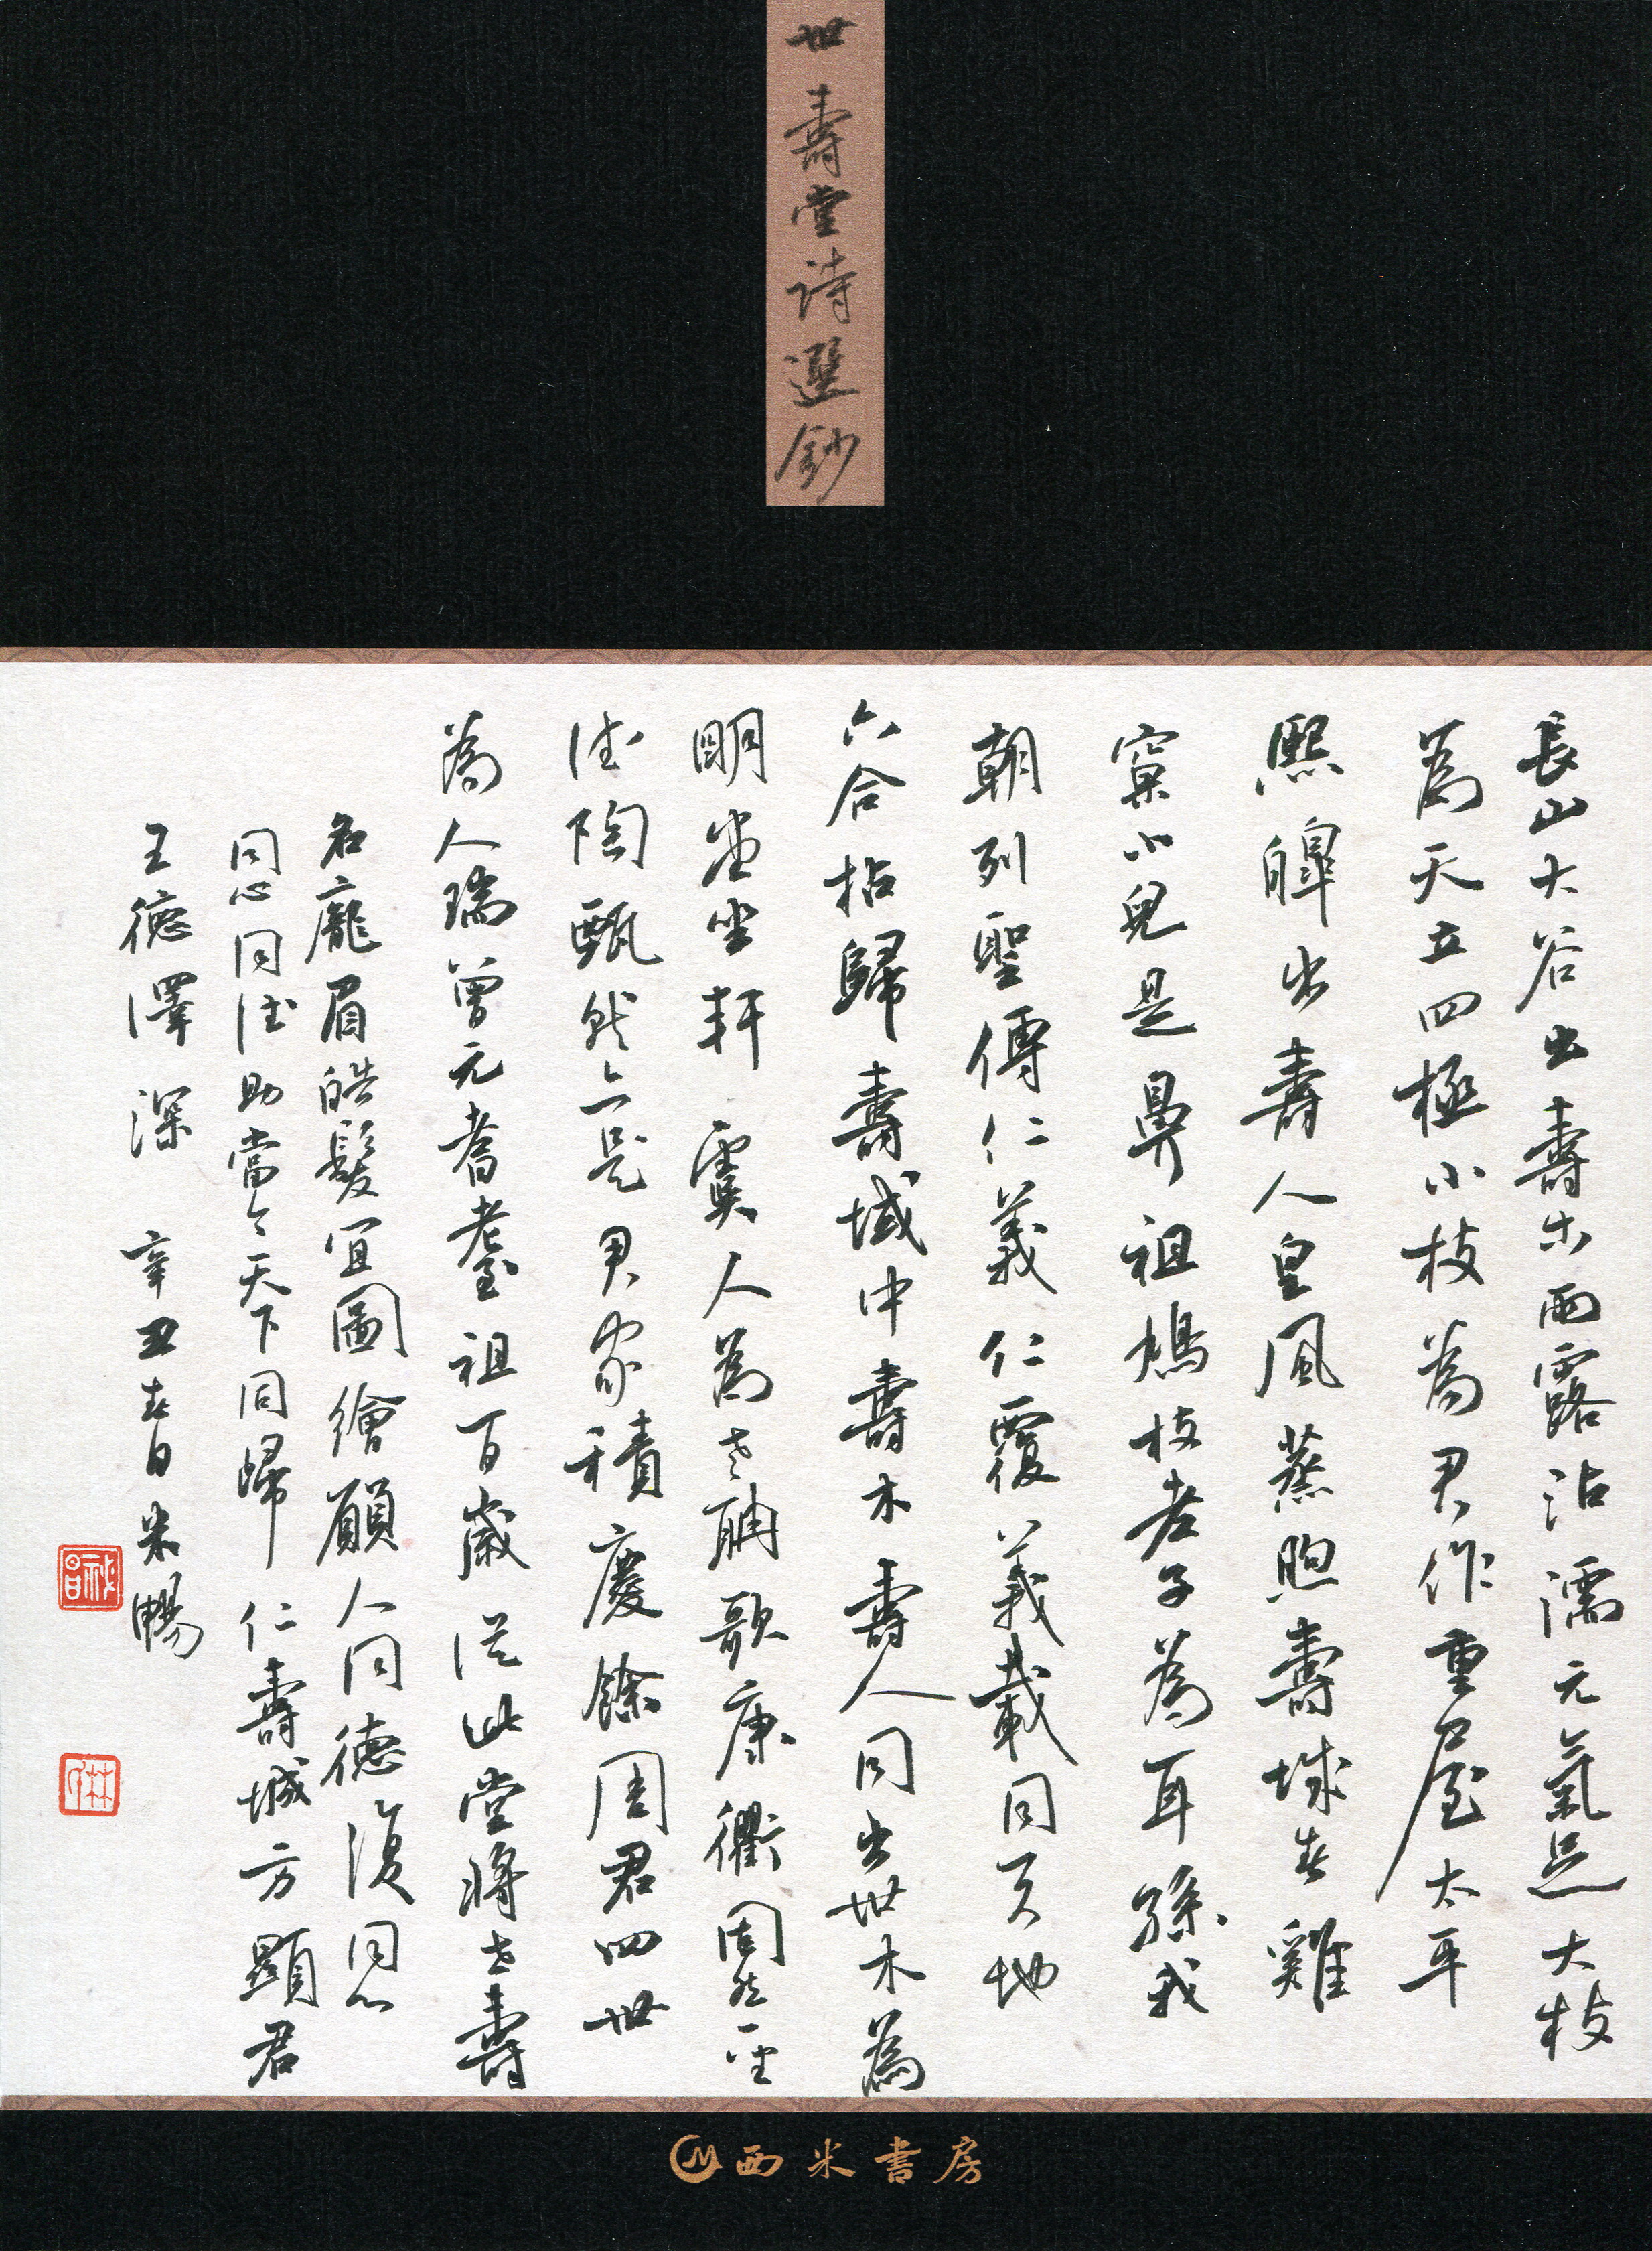 世壽堂詩選鈔
長山大谷出壽木雨露沾濡元氣足大枝
為天立四極小枝為君作重屋太平
熙皞出壽人皇風蒸煦壽域春雞
窠小兒是鼻祖鳩杖老子為耳孫我
朝列聖傳仁義仁覆義載同天地
六合拈歸壽域中壽木壽人同出世木為
明堂坐軒虞人為老聃歌康衢固然聖
德陶甄然亦是君家積慶餘周君四世
為人瑞曾元耆耋祖百歲從此堂將世壽
名龐眉皓髮宜圖繪願人同德復同心
同心同德助當今天下同歸仁壽域方顯君
王德澤深 辛丑春日米暢
西米書房